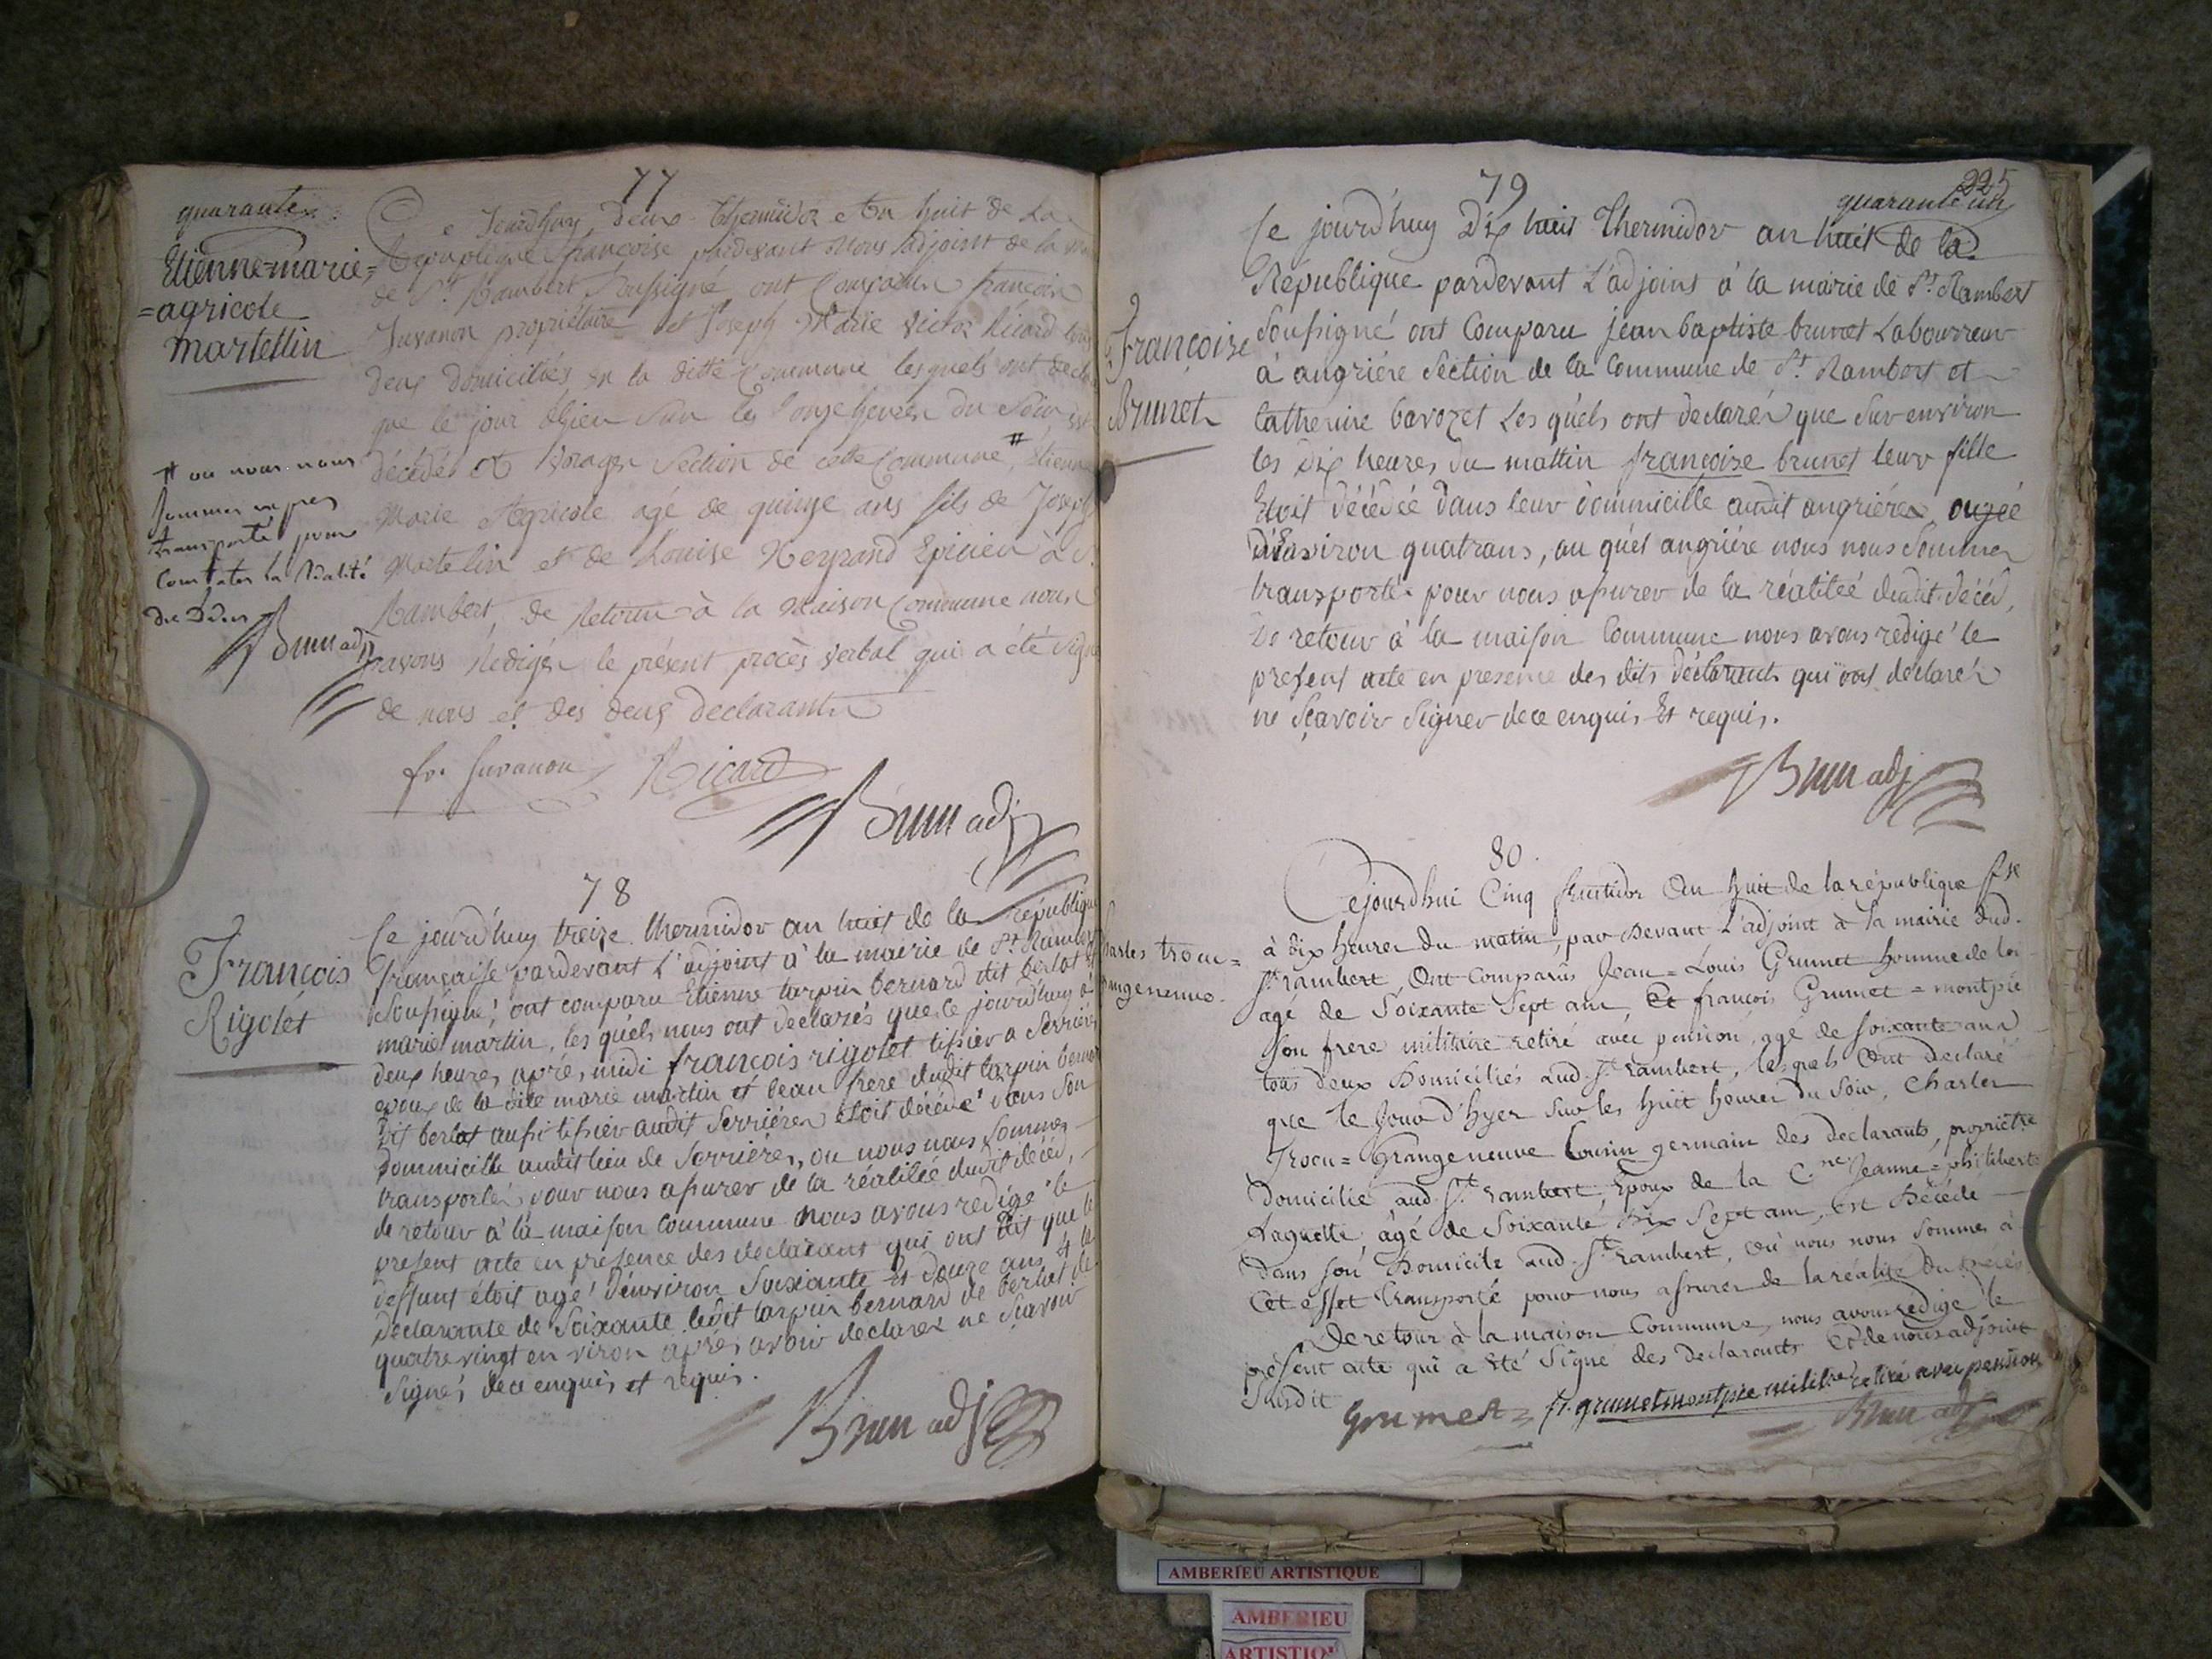 77
quarante
Etienne=marie=
=agricole
martellin
Ce Jourdhuy deux Thermidor En huit de La
République françoise pardevant Nous Adjoint de la
de St. Rambert Soussigné ont Comparu françois
Juvanon propriétaire et Joseph Marie Victor Ricard tous
deux domiciliés en la ditte Commune lesquels ont
que le jour Sur les onze heures du Soir
décédés Section de cette Commune #, Etienne
Marie Agricole agé de quinze ans fils de Joseph
Martelin et de Louise Neyrand Epicier à
Rambert, de Retour à la Maison Commune nous
avons Rédigés le présent procès verbal qui a été
de nous et des deux declarants
# ou nous nous
sommes
transporté pour
Constater la Réalité
du
Brun adj
fs. Juvanon Ricard
Brun adj
78
François
Rigolet
Ce jourd'huy treize thermidor an huit de la république
française pardevant L'adjoint à la mairie de St. Rambert
Soussigné, ont comparu Etienne tarpin bernard dit berlot et
marie martin, les quels nous ont declarés que ce jourd'huy à
deux heures, après, midi françois rigolet tissier a Serrières
epoux de la dite marie martin et beau frere dudit tarpin bernard
dit berlot aussi tissier audit Serrières étoit décédé dans Son
dommicille audit lieu de Serrières, ou nous nous Sommes
transportés pour nous assurer de la réalitée dudit décéd,
de retour à la maison Commune nous avons redigé le
present acte en presence des declarant qui ont dit que le
deffunt étoit agé d'environ Soixante et douze ans et la
declarante de Soixante ledit tarpin bernard de berlot de
quatre vingt en viron après avoir declarer ne Sçavoir
Signés dece enquis et requis.
Brun adj
225
79
quarante un
Françoize
Brunet
Ce jourd'huy Dix huit Thermidor an huit de la
République pardevant L'adjoint à la mairie de St. Rambert
Soussigné ont Comparu jean baptiste brunet Laboureur
à angriére Section de la Commune de St. Rambert et
Catherine bavozet Les quéls ont declarés que Sur environ
les dix heures, du mattin françoize brunet leur fille
Etoit décédée dans leur dommicille audit angriéres
d'Environ quatrans, au quél angriére nous nous Sommes
transporté pour nous assurer de la réalitée dudit décéd,
De retour à la maison Commune nous avons redigé le
present acte en presence des dits déclarants qui ont declarés
ne Sçavoir Signer dece enquis Et requis.
Brun adj
80.
Charles trocu=
grangeneuve.
Cejourdhui Cinq fructidor an huit de la république fse
à dix heures du matin, par Devant L'adjoint à la mairie dud.
St. rambert, Ont Comparus Jean=Louis Grumet homme de loi
agé de Soixante Sept ans, Et françois Grumet=montpie
son frere militaire retiré avec pension, agé de soixante ans
tous deux Domiciliés aud. St. rambert, lesquels Ont declaré
que le Jour d'hyer Sur les huit heures du Soir, Charles
Trocu=Grangeneuve Cousin germain des declarants, propriétre
Domicilié aud. St. rambert, Epoux de la Cne. Jeanne=philiberte
Laguette, âgé de Soixante Dix Sept ans, est Décédé
dans son Domicile aud. St. rambert, où nous nous Sommes à
Cet effet transporté pour nous assurer de la réalité du Decés
De retour à la maison Commune, nous avons redigé le
présent acte qui a été Signé des Declarants Et de nous adjoint
Susdit
Grumet fs. grumetmontpie militre. retiré avec pension
Brun adj
AMBERIEU ARTISTIQUE
AMBERIEU
ARTISTIQUE